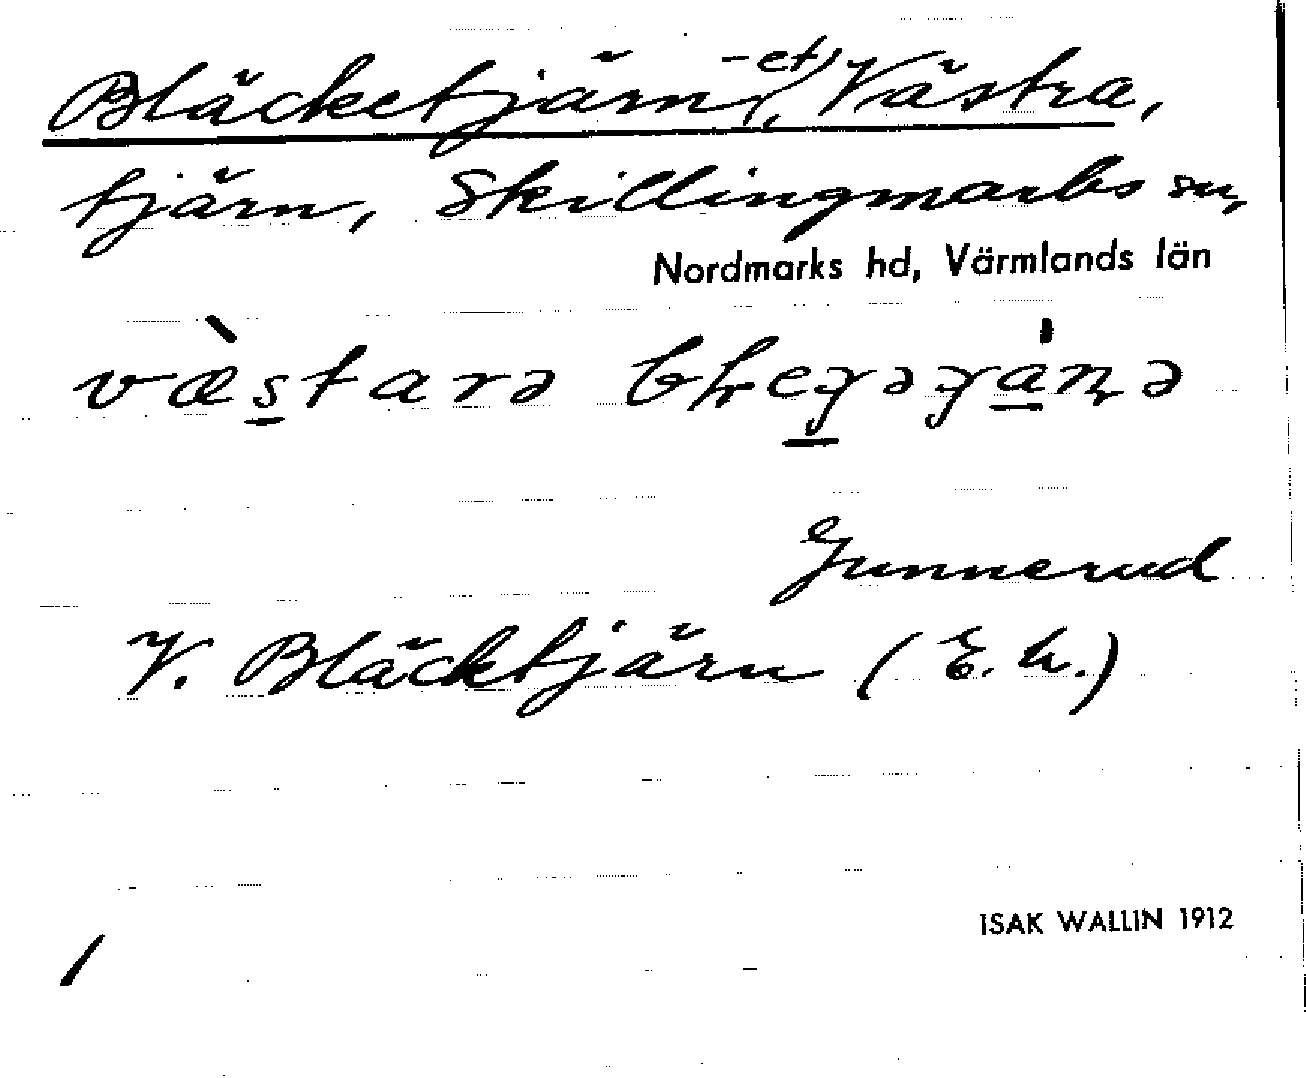 Bläcketjärn(-et), Västra,
tjärn, Skillingmarks sn,
Nordmarks hd, Värmlands län
Gunnerud
V. Bläcktjärn (E.k.)
ISAK WALLIN 1912
1